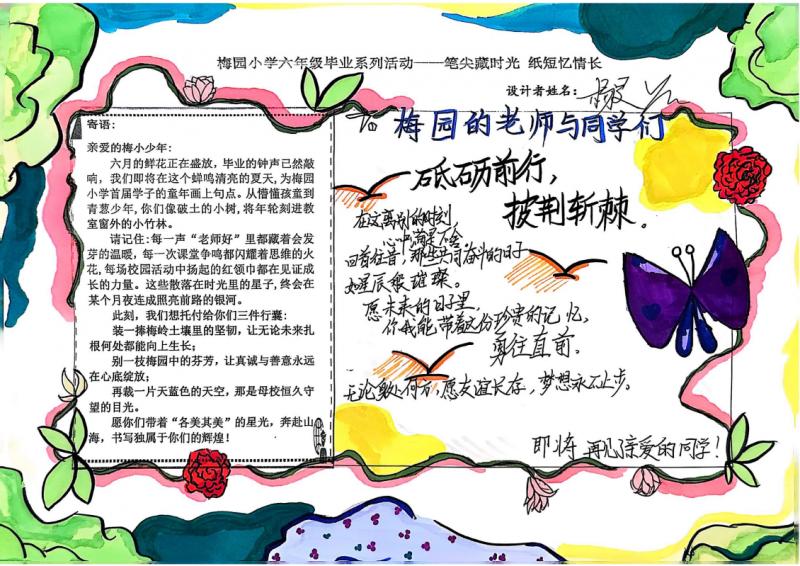 梅园小学六年级毕业系列活动——笔尖藏时光 纸短忆情长
设计者姓名：
寄语：
亲爱的梅小少年：
六月的鲜花正在盛放，毕业的钟声已然敲
响，我们即将在这个蝉鸣清亮的夏天，为梅园
小学首届学子的童年画上句点。从懵懂孩童到
青葱少年，你们像破土的小树，将年轮刻进教
室窗外的小竹林。
请记住：每一声“老师好”里都藏着会发
芽的温暖，每一次课堂争鸣都闪耀着思维的火
花，每场校园活动中扬起的红领巾都在见证成
长的力量。这些散落在时光里的星子，终会在
某个月夜连成照亮前路的银河。
此刻，我们想托付给你们三件行囊：
装一捧梅岭土壤里的坚韧，让无论未来扎
根何处都能向上生长；
别一枝梅园中的芬芳，让真诚与善意永远
在心底绽放；
再裁一片天蓝色的天空，那是母校恒久守
望的目光。
愿你们带着“各美其美”的星光，奔赴山
海，书写独属于你们的辉煌！
To 梅园的老师与同学们
砥砺前行，
披荆斩棘.
在这离别的时刻
心中满是不舍
回首往昔，那些共同奋斗的日子
如星辰般璀璨。
愿未来的日子里，
你我能带着这份珍贵的记忆，
勇往直前。
无论身处何方，愿友谊长存，梦想永不止步。
即将再见了亲爱的同学！